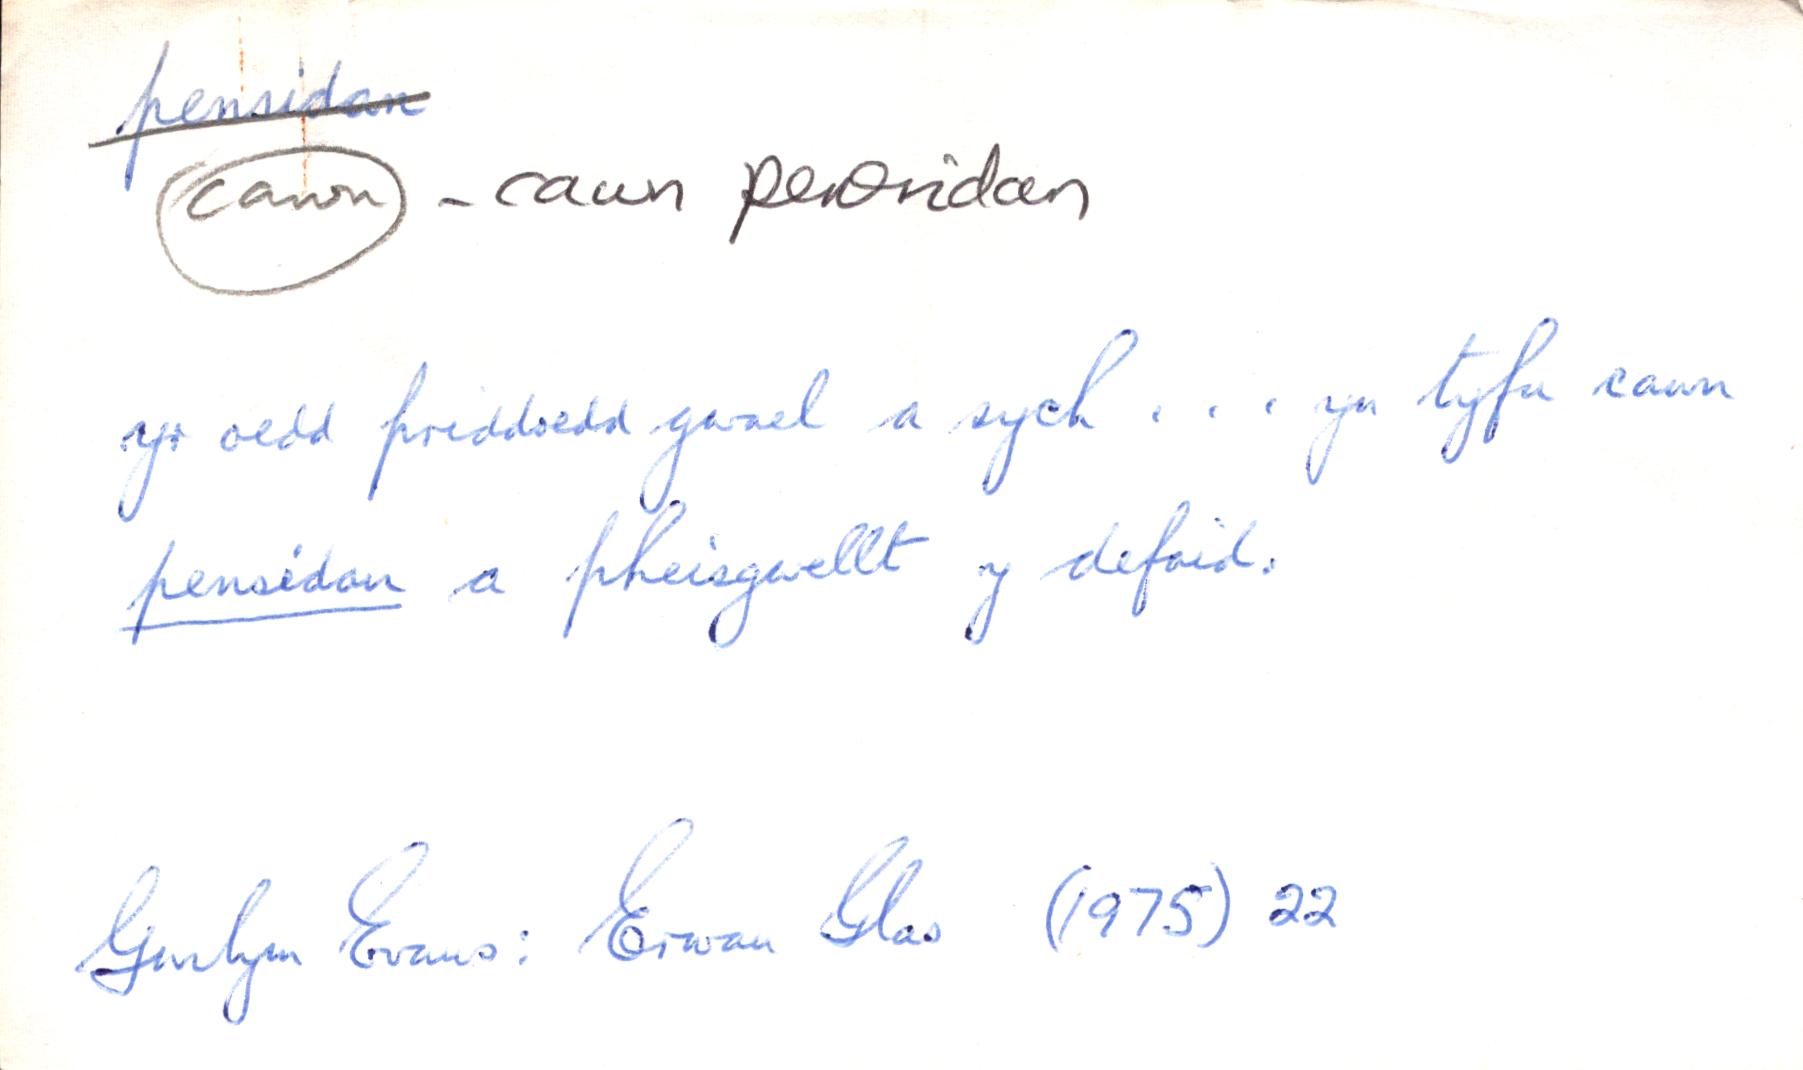 pensidan
cawn - cawn pensidan
yr oedd priddoedd gwael a sych . . . yn tyfu cawn
pensidan a pheisgwellt y defaid.
Gwilym Evans: Erwau Glas (1975) 22